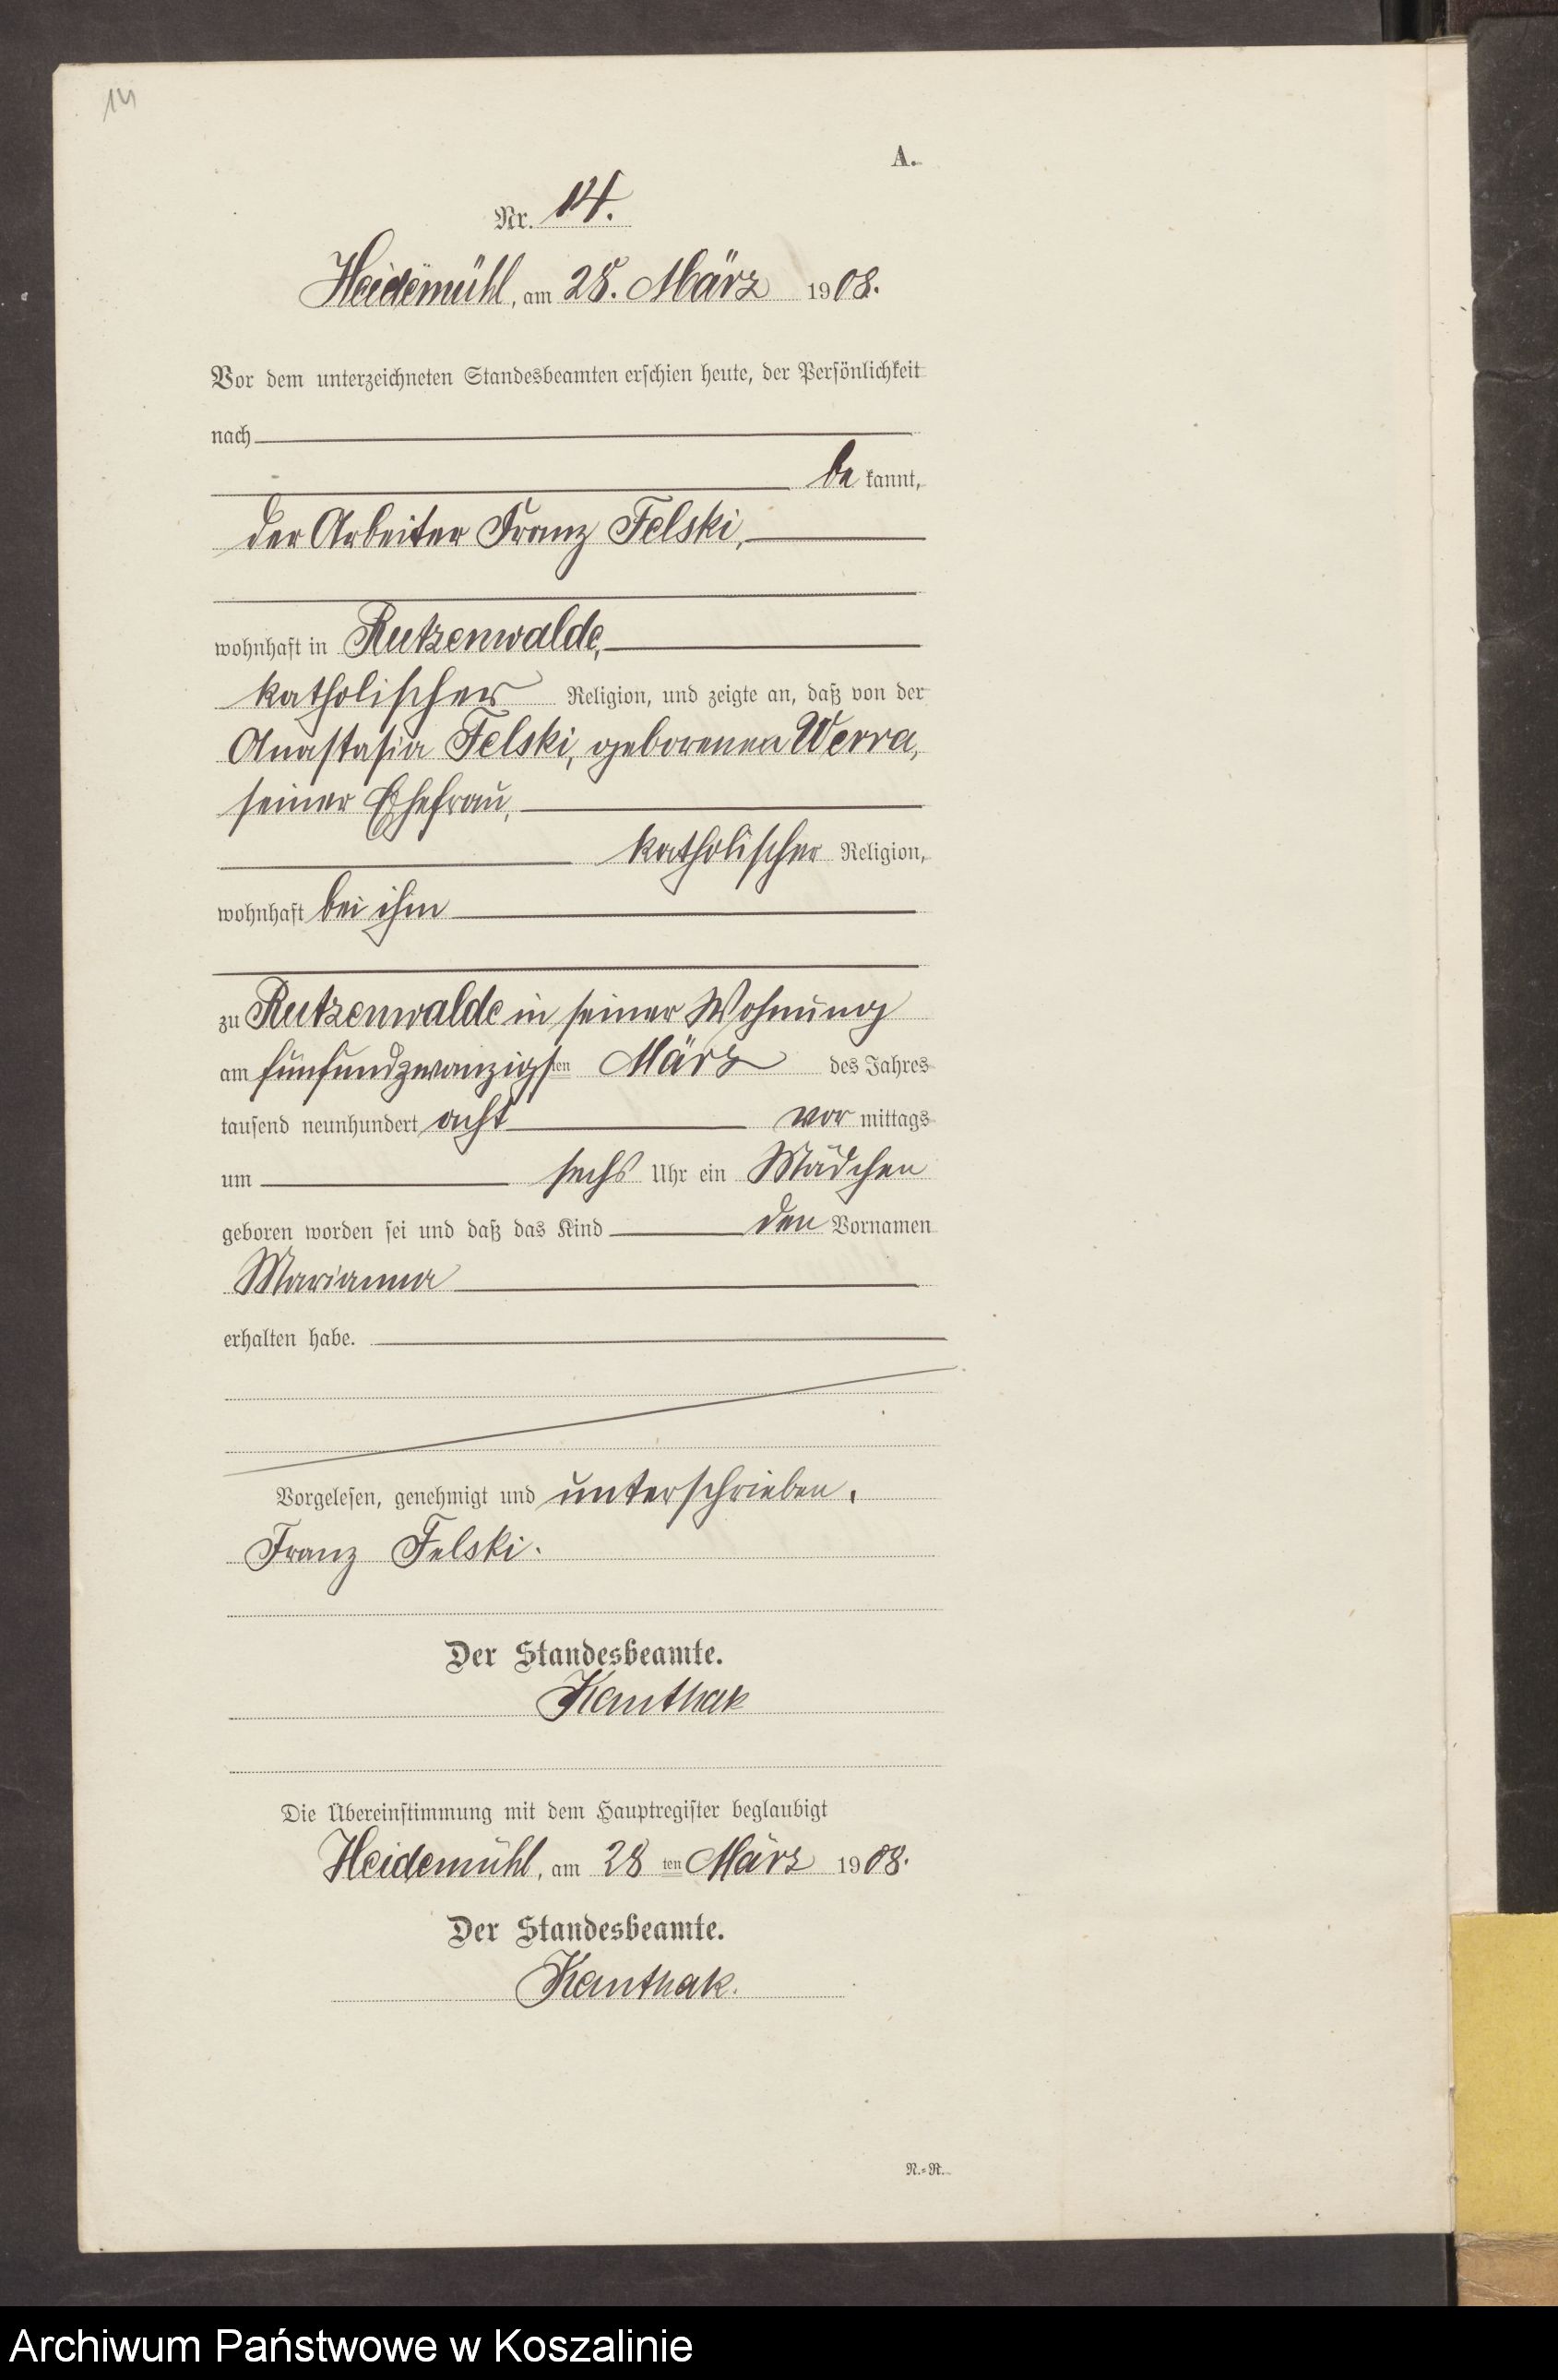 14
A.
Nr. 14.
Heidemühl, am 28. März 1908.
Vor dem unterzeichneten Standesbeamten erschien heute, der Persönlichkeit
nach
be kannt,
der Arbeiter Franz Felski,
wohnhaft in Rutzenwalde,
katholischer Religion, und zeigte an, daß von der
Anastasia Felski, geborenen Werra,
seiner Ehefrau,
katholischer Religion,
wohnhaft bei ihm
zu Rutzenwalde in seiner Wohnung
am fünfundzwanzigsten März des Jahres
tausend neunhundert acht vor mittags
um sechs Uhr ein Mädchen
geboren worden sei und daß das Kind den Vornamen
Marianna
erhalten habe.
Vorgelesen, genehmigt und unterschrieben.
Franz Felski.
Der Standesbeamte.
Kanthak
Die Übereinstimmung mit dem Hauptregister beglaubigt
Heidemühl, am 28 ten März 1908.
Der Standesbeamte.
Kanthak.
N.=R.
Archiwum Państwowe w Koszalinie